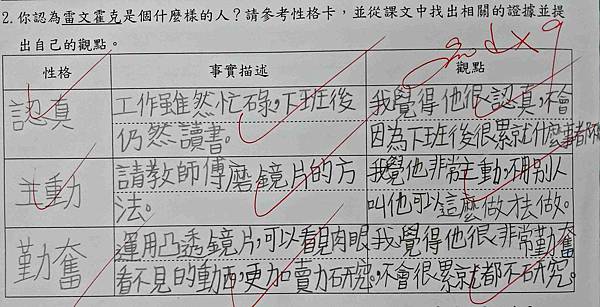 2.你認為雷文霍克是個什麼樣的人？請參考性格卡，並從課文中找出相關的證據並提
出自己的觀點。
性格
事實描述
觀點
認真
工作雖然忙碌，下班後
仍然讀書。
我覺得他很認真，不會
因為下班後很累就什麼事都不
主動
請教師傅磨鏡片的方
法。
我覺他非常主動，不用別人
叫他可以這麼做才去做。
勤奮
運用凸透鏡片，可以看見肉眼
看不見的動西，更加賣力研究。
我覺得他很非常勤奮
不會很累就都不研究。